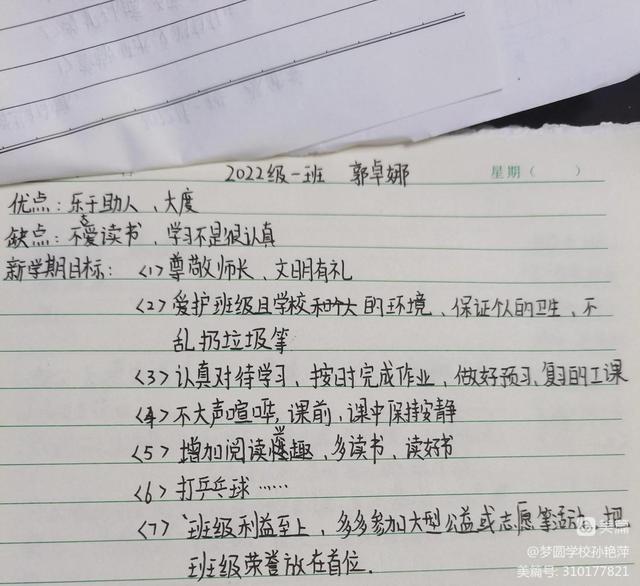 2022级一班 郭卓娜
星期（ ）
优点：乐于助人、大度
缺点：不爱读书，学习不是很认真
新学期目标：<1>尊敬师长、文明有礼
<2>爱护班级且学校和大的环境、保证个人的卫生、不
乱扔垃圾等
<3>认真对待学习、按时完成作业，做好预习、复习的工课
<4>不大声喧哗，课前，课中保持安静
<5>增加阅读兴趣、多读书、读好书
<6>打乒乓球……
<7>班级利益至上，多多参加大型公益或志愿等活动、把
班级荣誉放在首位.
美篇
@梦圆学校孙艳萍
美篇号: 310177821